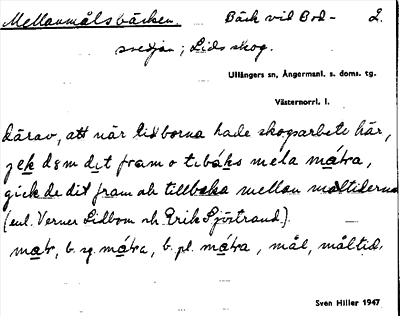 Mellanmålsbäcken. Bäck vid Bod- 2.
svedjan; Lids skog.
Ullångers sn, Ångermanl. s. doms. tg.
Västernorrl. l.
därav, att när lidborna hade skogsarbete här,
jek dem dit fram o tebáks mela mátra,
gick de dit fram och tillbaka mellan måltiderna
(enl. Verner Lidbom och Erik Sjöstrand).
mat, b. sg. mátra, b. pl. mátra, mål, måltid.
Sven Hiller 1947